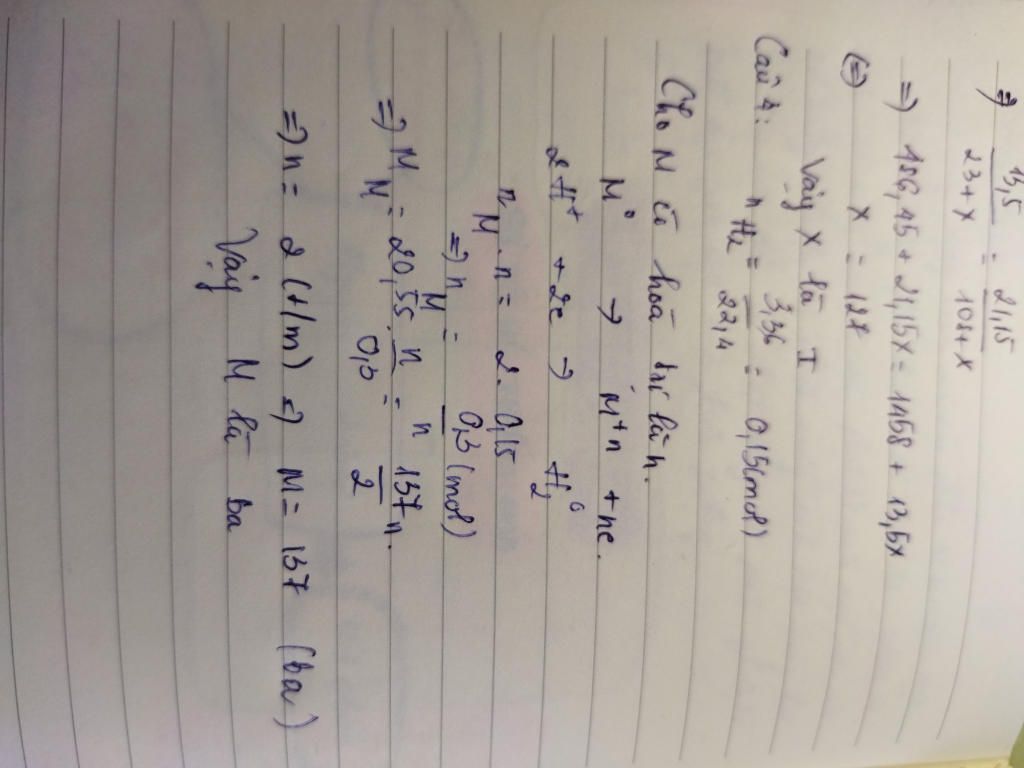 => 13,5/23+X = 21,15/108+X
=> 486,45 + 21,15X = 1458 + 13,5X
(=) X = 127
Vậy X là I
Câu 4: nH₂ = 3,36/22,4 = 0,15(mol)
Cho M có hoá trị là n.
M⁰ → M⁺ⁿ + ne.
2H⁺ + 2e → H₂⁰
nM . n = 2. 0,15
=) nM = 0,3/n (mol)
=) MM = 20,55. n/0,3 = 137/2 n.
=) n = 2 (t/m) =) M = 137 (ba)
Vậy M là ba